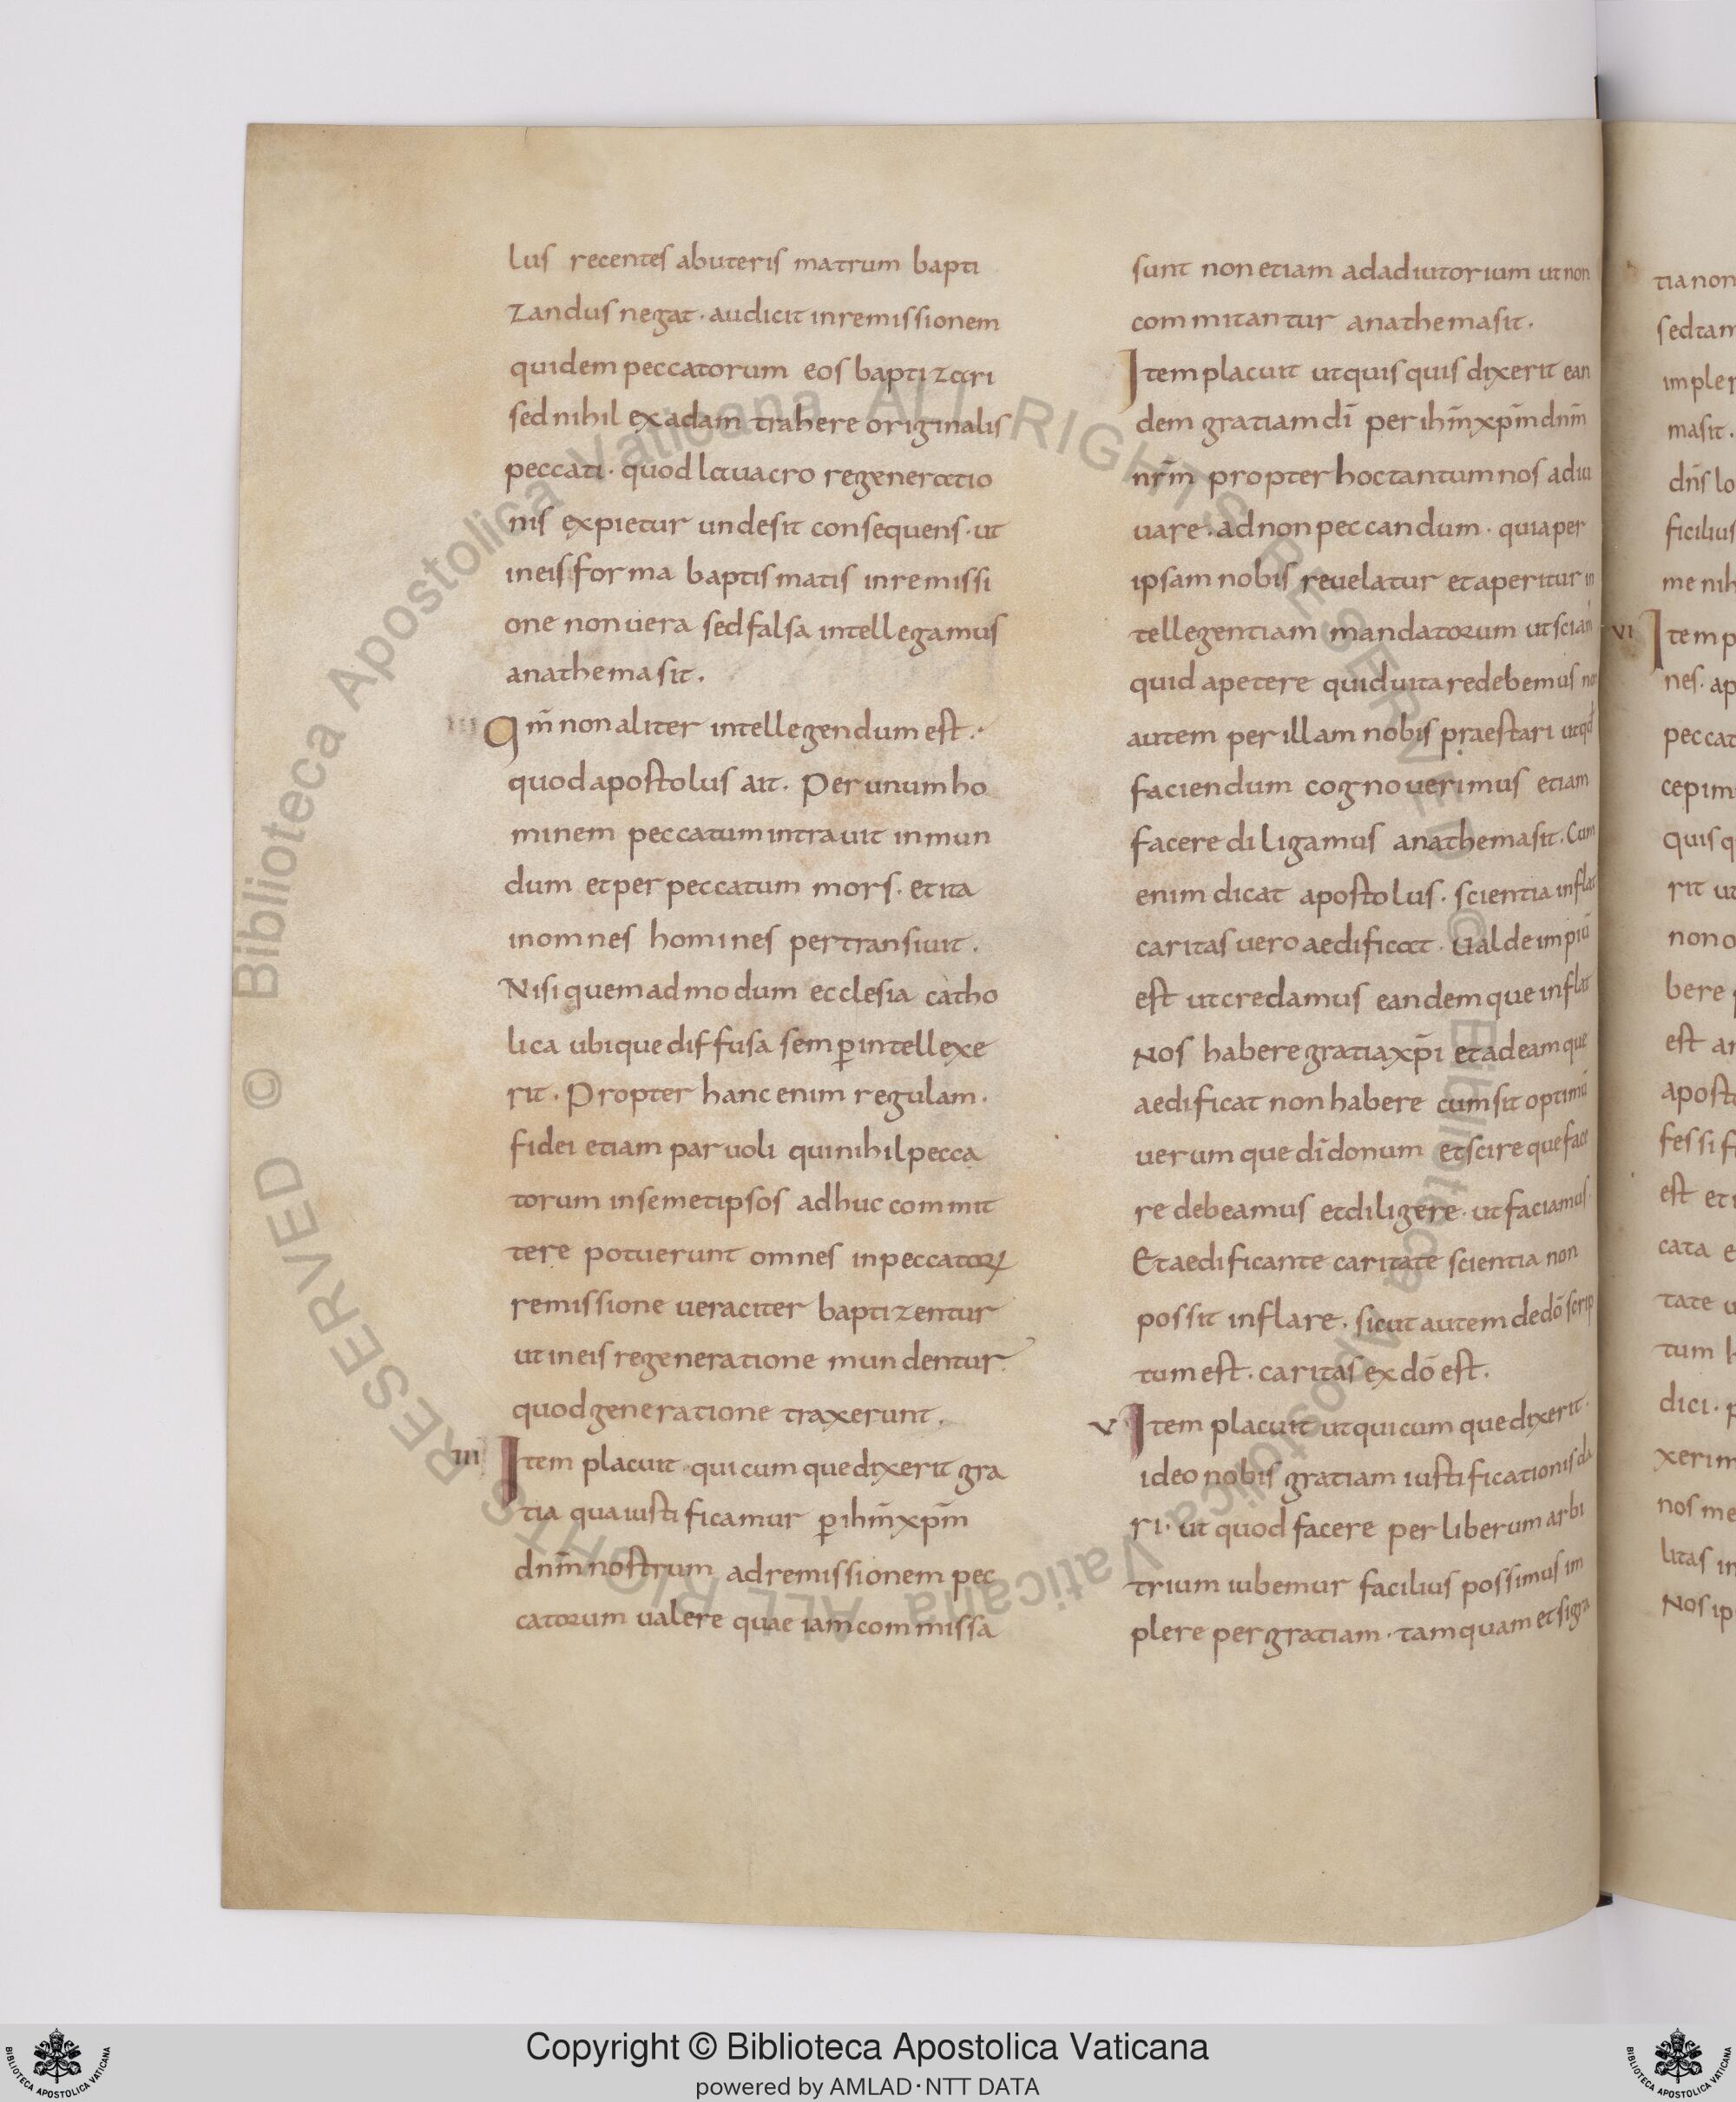 lus recentes abuteris matrum bapti
zandus negat · audicit inremissionem
quidem peccatorum eos baptizari
sed nihil ex adam trahere originalis
peccati · quod lauacro regeneratio
nis expietur undesit consequens · ut
ineis forma baptismatis inremissi
one non uera sed falsa intellegamus
anathemasit .
Qm̄ non aliter intellegendum est .·
quod apostolus ait . Per unum ho
minem peccatum intrauit inmun
dum et per peccatum mors . et ita
inomnes homines pertransiuit .
Nisi quemadmodum ecclesia catho
lica ubique diffusa semꝑ intellexe
rit . Propter hanc enim regulam .
fidei etiam paruoli qui nihil pecca
torum insemetipsos adhuc commit
tere potuerunt omnes inpeccatoꝝ
remissione ueraciter baptizentur
ut ineis regeneratione mundentur .
quod generatione traxerunt .
III Item placuit · quicumque dixerit gra
tia qua iustificamur ꝑ ihm̄ xpm̄
dnm̄ nostrum ad remissionem pec
catorum ualere quae iam commissa
sunt non etiam ad adiutorium ut non
committantur anathemasit .
Item placuit ut quisquis dixerit ean
dem gratiam dī per ihm̄ xpm̄ dnm̄
nrm̄ propter hoc tantum nos adiu
uare . ad non peccandum . quia per
ipsam nobis reuelatur et aperitur in
tellegentiam mandatorum ut sciam̄
quid apetere quid uitare debemus non
autem per illam nobis praestari ut qđ
faciendum cognouerimus etiam
facere diligamus anathemasit . Cum
enim dicat apostolus . scientia inflat
caritas uero aedificat . Ualde impiū
est ut credamus eandem que inflat
Nos habere gratia xp̄i et ad eam que
aedificat non habere cum sit optimū
uerumque dī donum et scire que face
re debeamus et diligere . ut faciamus .
Et aedificante caritate scientia non
possit inflare . sicut autem de dō scrip
tum est . caritas ex dō est .
V Item placuit ut quicumque dixerit .
ideo nobis gratiam iustificationis da
ri . ut quod facere per liberum arbi
trium iubemur facilius possimus im
plere per gratiam . tamquam et si gra
tia non
sed tam
impler
masit .
dn̄s lo
ficilius
me nih
VI Item p
nes . ap
peccat
cepim
quis q
rit ut
non o
bere
est an
aposto
fessi f
est et
cata e
tate u
tum h
dici . p
xerim
nos me
litas in
Nos ip
© Biblioteca Apostolica Vaticana ALL RIGHTS RESERVED © Biblioteca Apostolica Vaticana ALL RIGHTS RESERVED
Copyright © Biblioteca Apostolica Vaticana
powered by AMLAD·NTT DATA
BIBLIOTECA APOSTOLICA VATICANA
BIBLIOTECA APOSTOLICA VATICANA